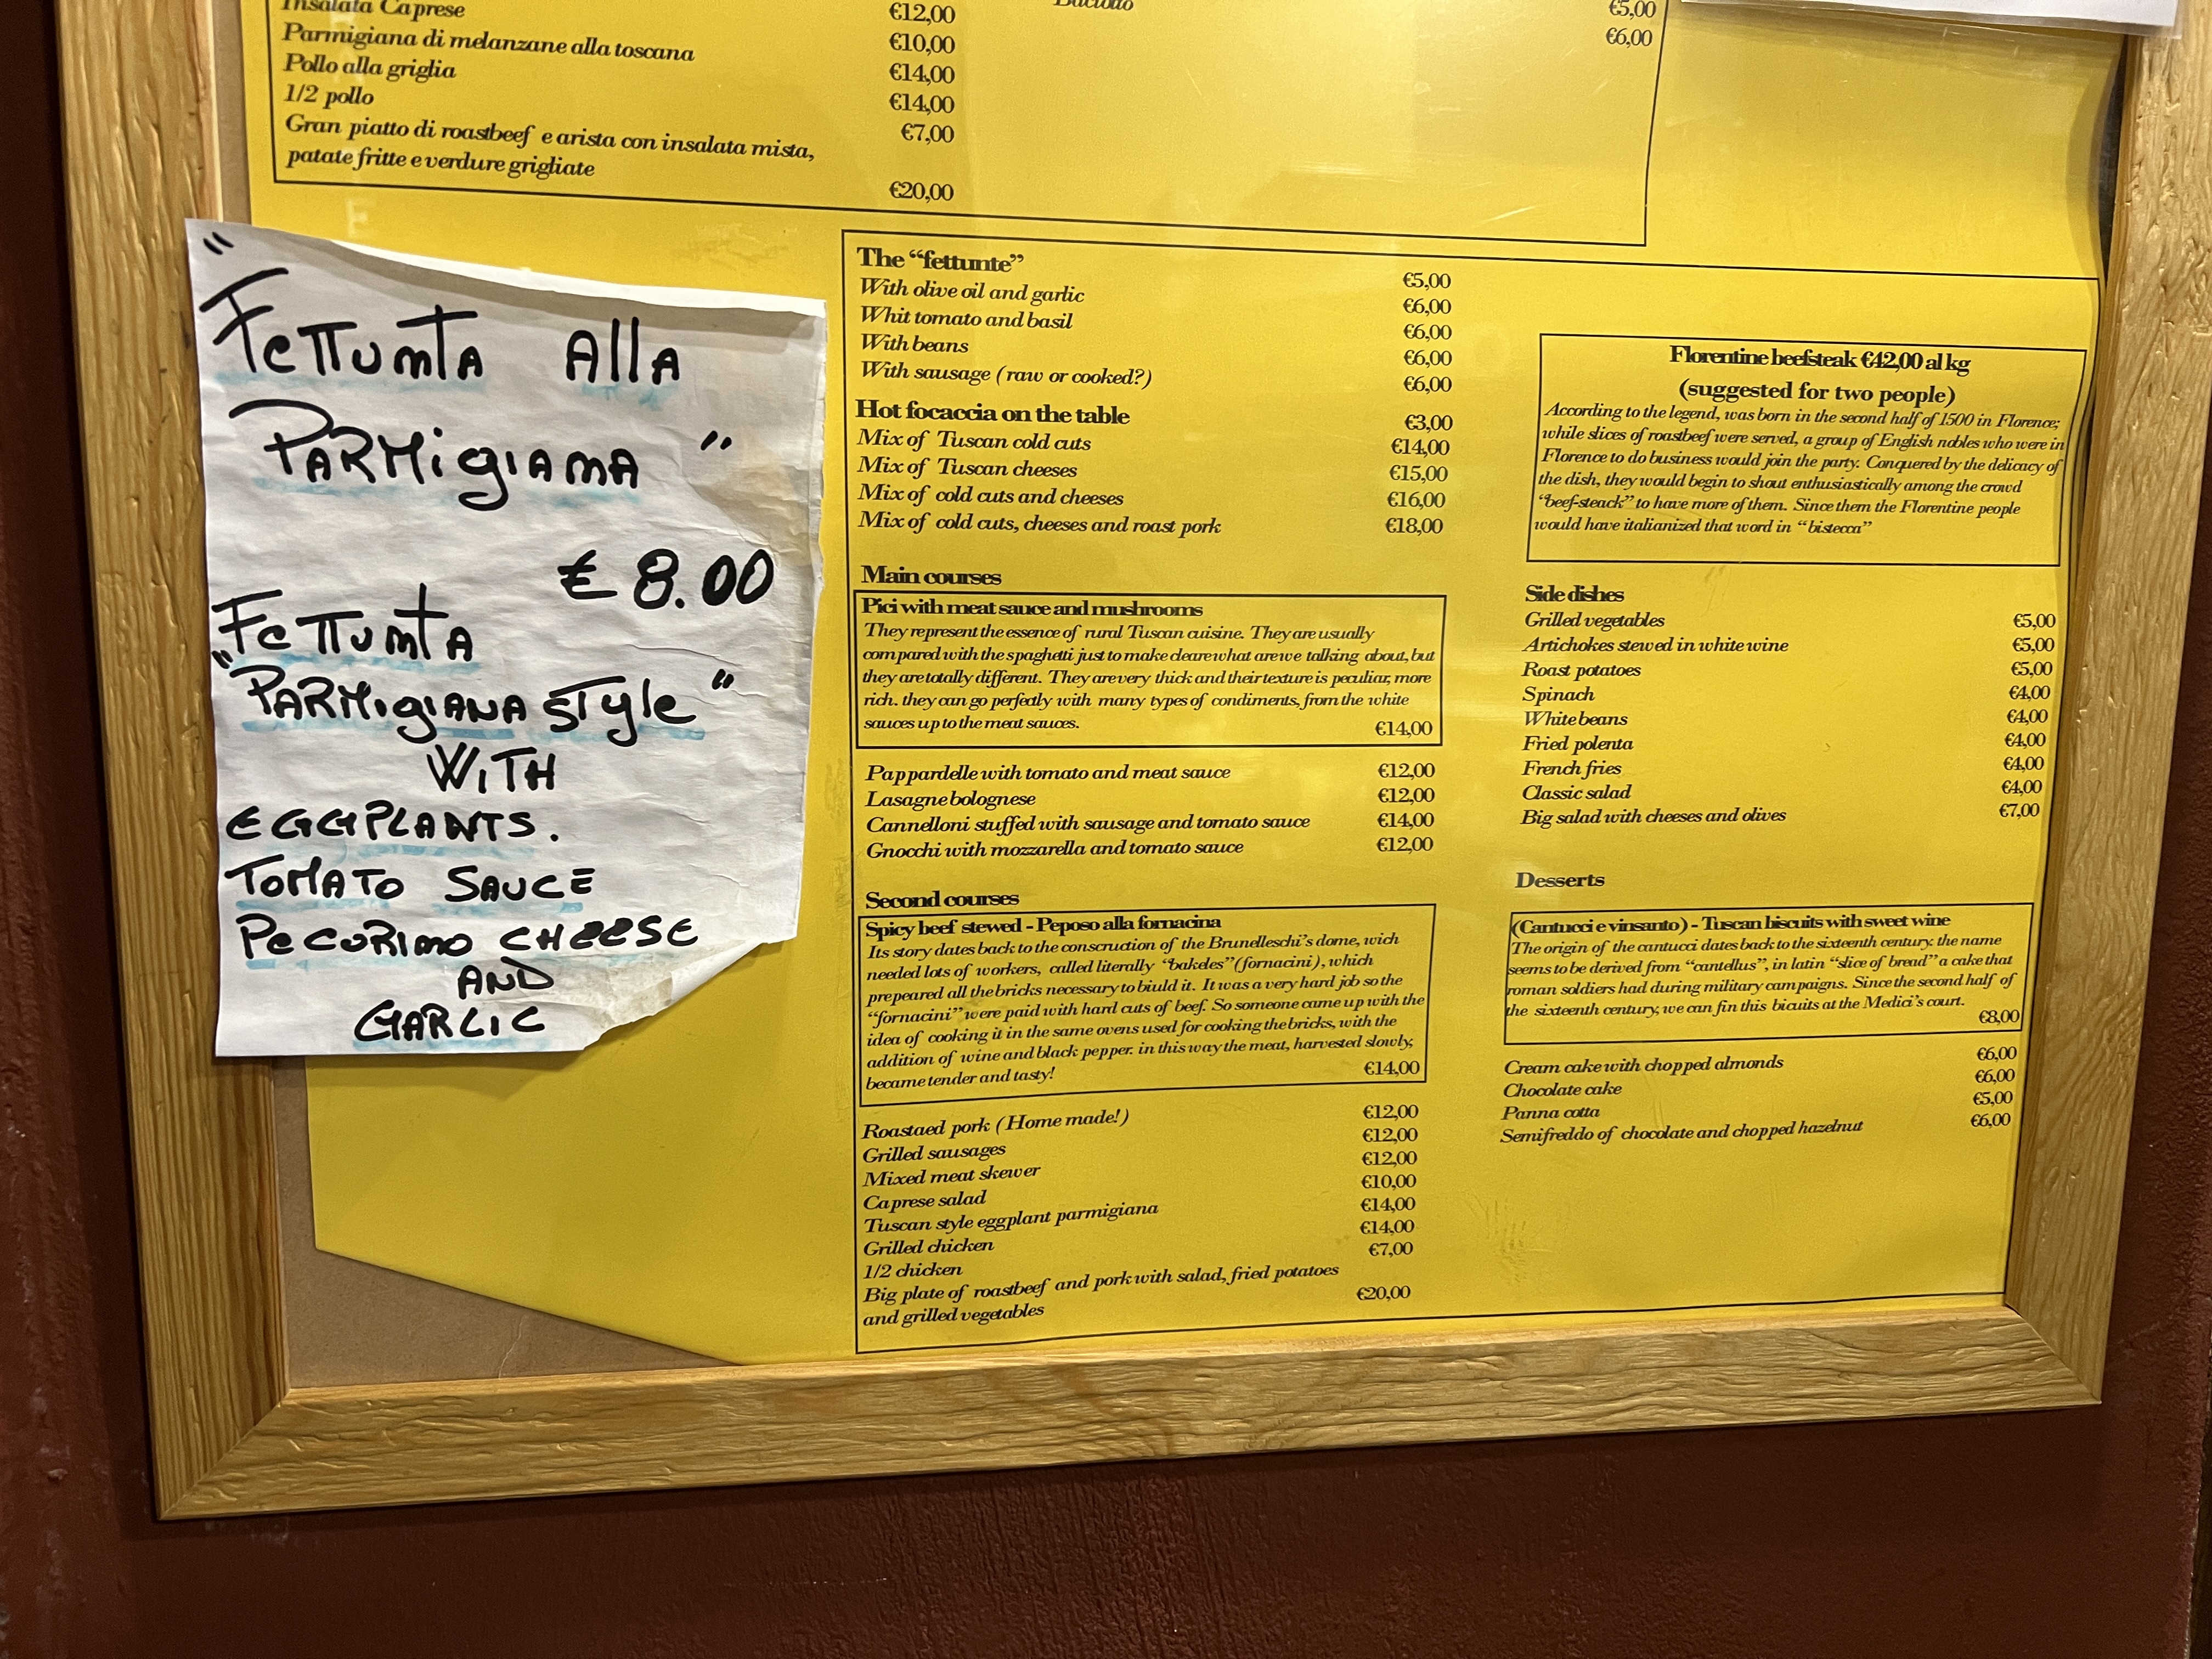 Insalata Caprese €12,00
Parmigiana di melanzane alla toscana €10,00
Pollo alla griglia €14,00
1/2 pollo €14,00
Gran piatto di roastbeef e arista con insalata mista, €7,00
patate fritte e verdure grigliate
€20,00
€5,00
€6,00
"Fettunta alla
Parmigiana"
€ 8.00
Fettunta
"Parmigiana style"
with
eggplants.
tomato sauce
pecorino cheese
and
garlic
The "fettunte"
€5,00
With olive oil and garlic €6,00
Whit tomato and basil €6,00
With beans €6,00
With sausage (raw or cooked?) €6,00
Hot focaccia on the table €3,00
Mix of Tuscan cold cuts €14,00
Mix of Tuscan cheeses €15,00
Mix of cold cuts and cheeses €16,00
Mix of cold cuts, cheeses and roast pork €18,00
Main courses
Pici with meat sauce and mushrooms
They represent the essence of rural Tuscan cuisine. They are usually
compared with the spaghetti just to make cleare what are we talking about, but
they are totally different. They are very thick and their texture is peculiar, more
rich. they can go perfectly with many types of condiments, from the white
sauces up to the meat sauces. €14,00
Pappardelle with tomato and meat sauce €12,00
Lasagne bolognese €12,00
Cannelloni stuffed with sausage and tomato sauce €14,00
Gnocchi with mozzarella and tomato sauce €12,00
Second courses
Spicy beef stewed - Peposo alla fornacina
Its story dates back to the conscruction of the Brunelleschi's dome, wich
needed lots of workers, called literally "bakeles" (fornacini), which
prepeared all the bricks necessary to biuld it. It was a very hard job so the
"fornacini" were paid with hard cuts of beef. So someone came up with the
idea of cooking it in the same ovens used for cooking the bricks, with the
addition of wine and black pepper. in this way the meat, harvested slowly,
became tender and tasty! €14,00
Roastaed pork (Home made!) €12,00
Grilled sausages €12,00
Mixed meat skewer €12,00
Caprese salad €10,00
Tuscan style eggplant parmigiana €14,00
Grilled chicken €14,00
1/2 chicken €7,00
Big plate of roastbeef and pork with salad, fried potatoes
and grilled vegetables €20,00
Florentine beefsteak €42,00 al kg
(suggested for two people)
According to the legend, was born in the second half of 1500 in Florence;
while slices of roastbeef were served, a group of English nobles who were in
Florence to do business would join the party. Conquered by the delicacy of
the dish, they would begin to shout enthusiastically among the crowd
"beef-steack" to have more of them. Since them the Florentine people
would have italianized that word in "bistecca"
Side dishes
Grilled vegetables €5,00
Artichokes stewed in white wine €5,00
Roast potatoes €5,00
Spinach €4,00
White beans €4,00
Fried polenta €4,00
French fries €4,00
Classic salad €4,00
Big salad with cheeses and olives €7,00
Desserts
(Cantucci e vinsanto) - Tuscan biscuits with sweet wine
The origin of the cantucci dates back to the sixteenth century. the name
seems to be derived from "cantellus", in latin "slice of bread" a cake that
roman soldiers had during military campaigns. Since the second half of
the sixteenth century, we can fin this bicuits at the Medici's court.
€8,00
Cream cake with chopped almonds €6,00
Chocolate cake €6,00
Panna cotta €5,00
Semifreddo of chocolate and chopped hazelnut €6,00